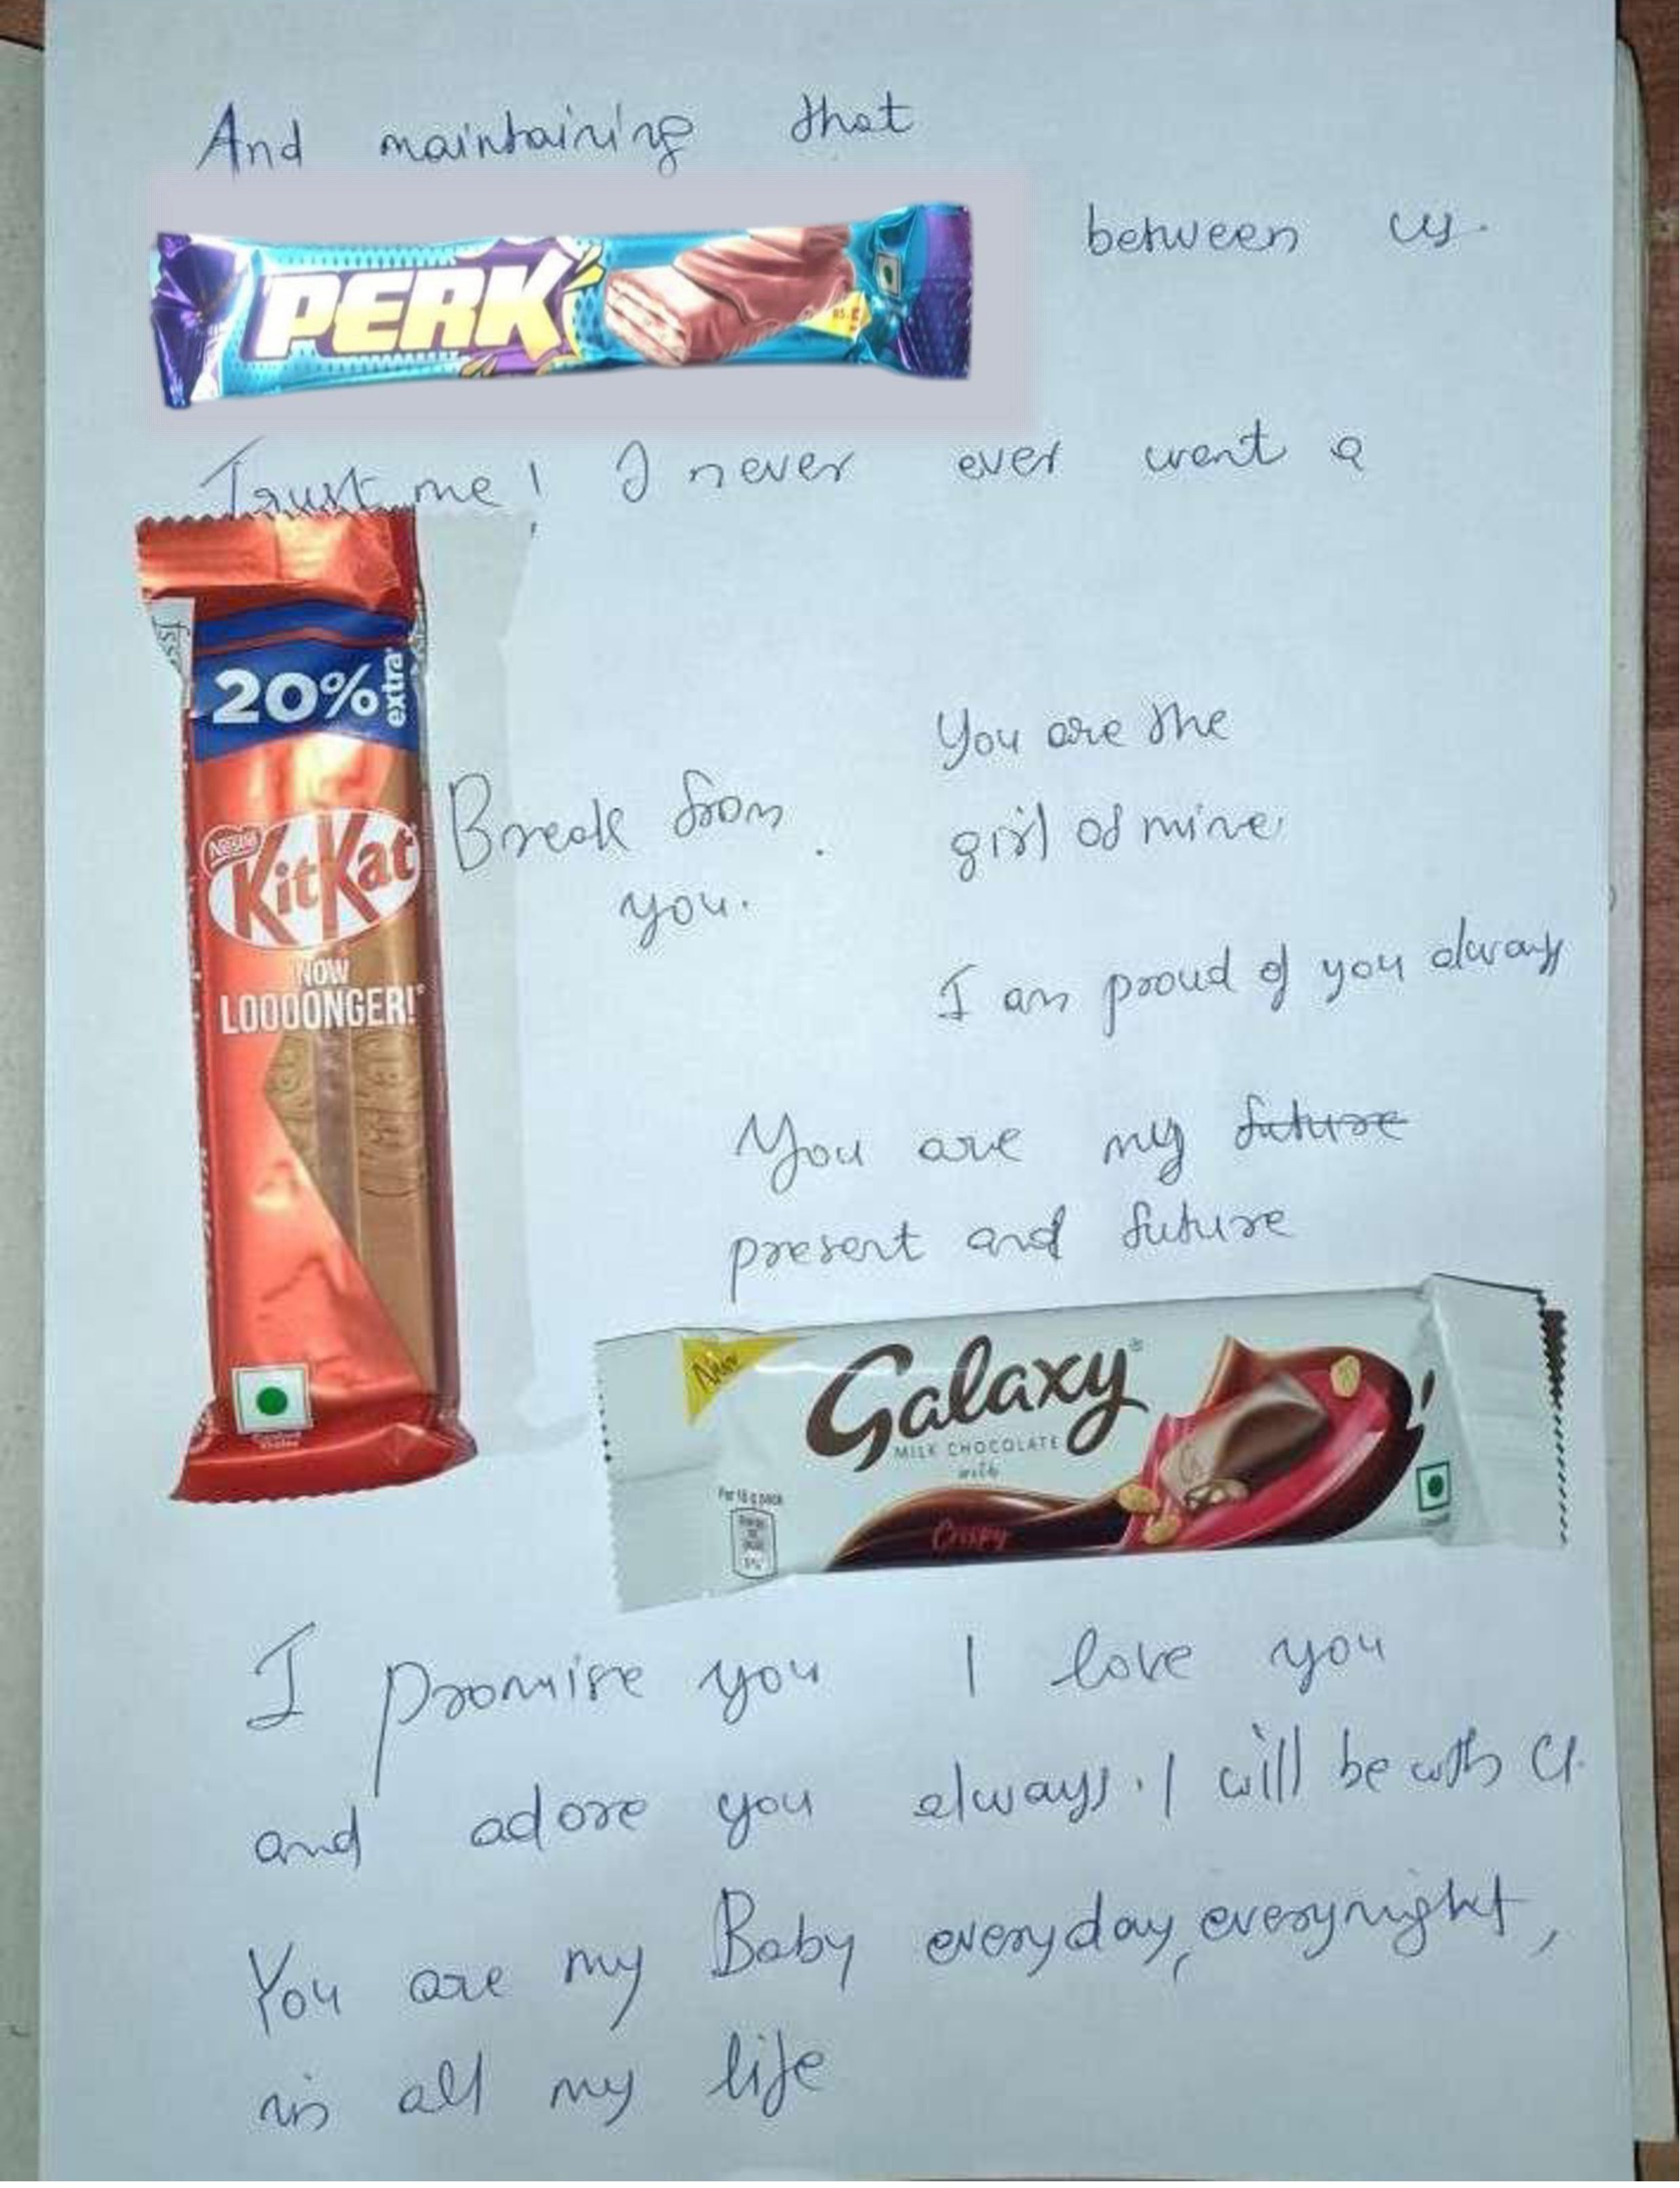 And maintaining that
PERK
RS.5
between us.
Trust me! I never ever want a
20% extra
Nestle
KitKat
NOW
LOOOONGER!
Break from
you.
You are the
girl of mine.
I am proud of you always
You are my future
present and future
New
Galaxy
MILK CHOCOLATE
with
Crispy
For 18 g pack
I promise you I love you
and adore you always. I will be with U.
You are my Baby everyday, everynight,
in all my life